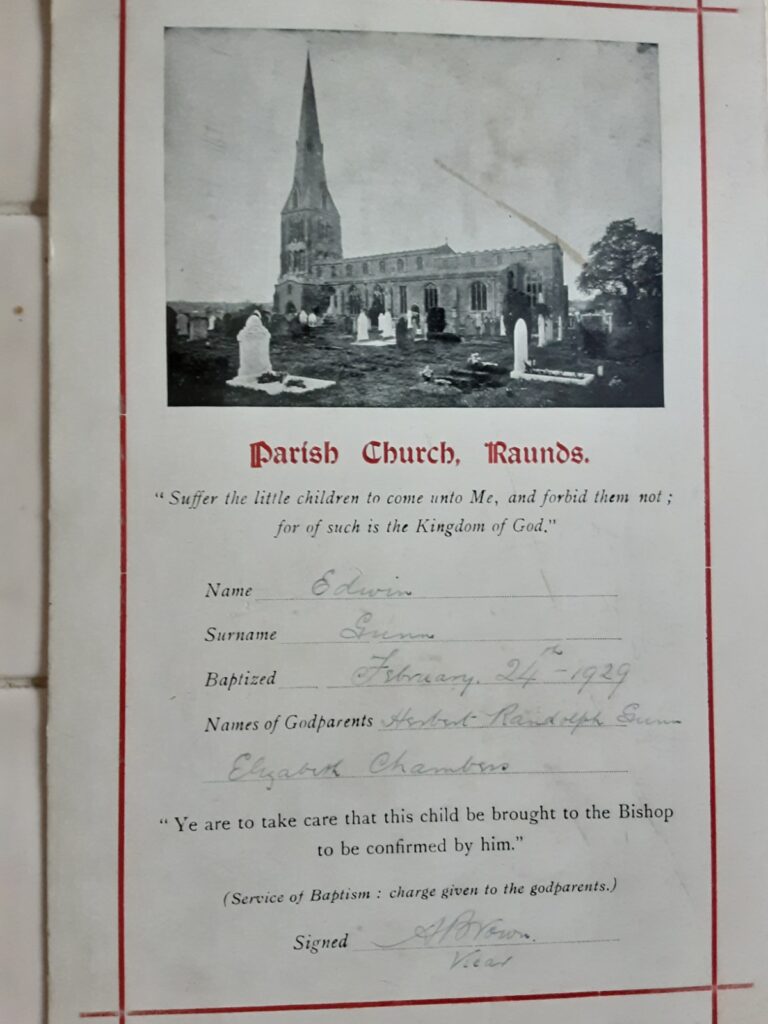 Parish Church, Raunds.
"Suffer the little children to come unto Me, and forbid them not;
for of such is the Kingdom of God."
Name Edwin
Surname Gunn
Baptized February. 24th - 1929
Names of Godparents Herbert Randolph Gunn
Elizabeth Chambers
"Ye are to take care that this child be brought to the Bishop
to be confirmed by him."
(Service of Baptism: charge given to the godparents.)
Signed A Brown.
Vicar